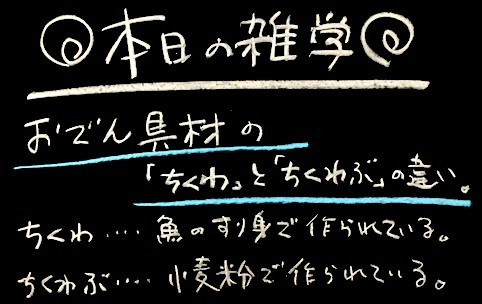 本日の雑学
おでん具材の
「ちくわ」と「ちくわぶ」の違い。
ちくわ‥‥魚のすり身で作られている。
ちくわぶ‥‥小麦粉で作られている。